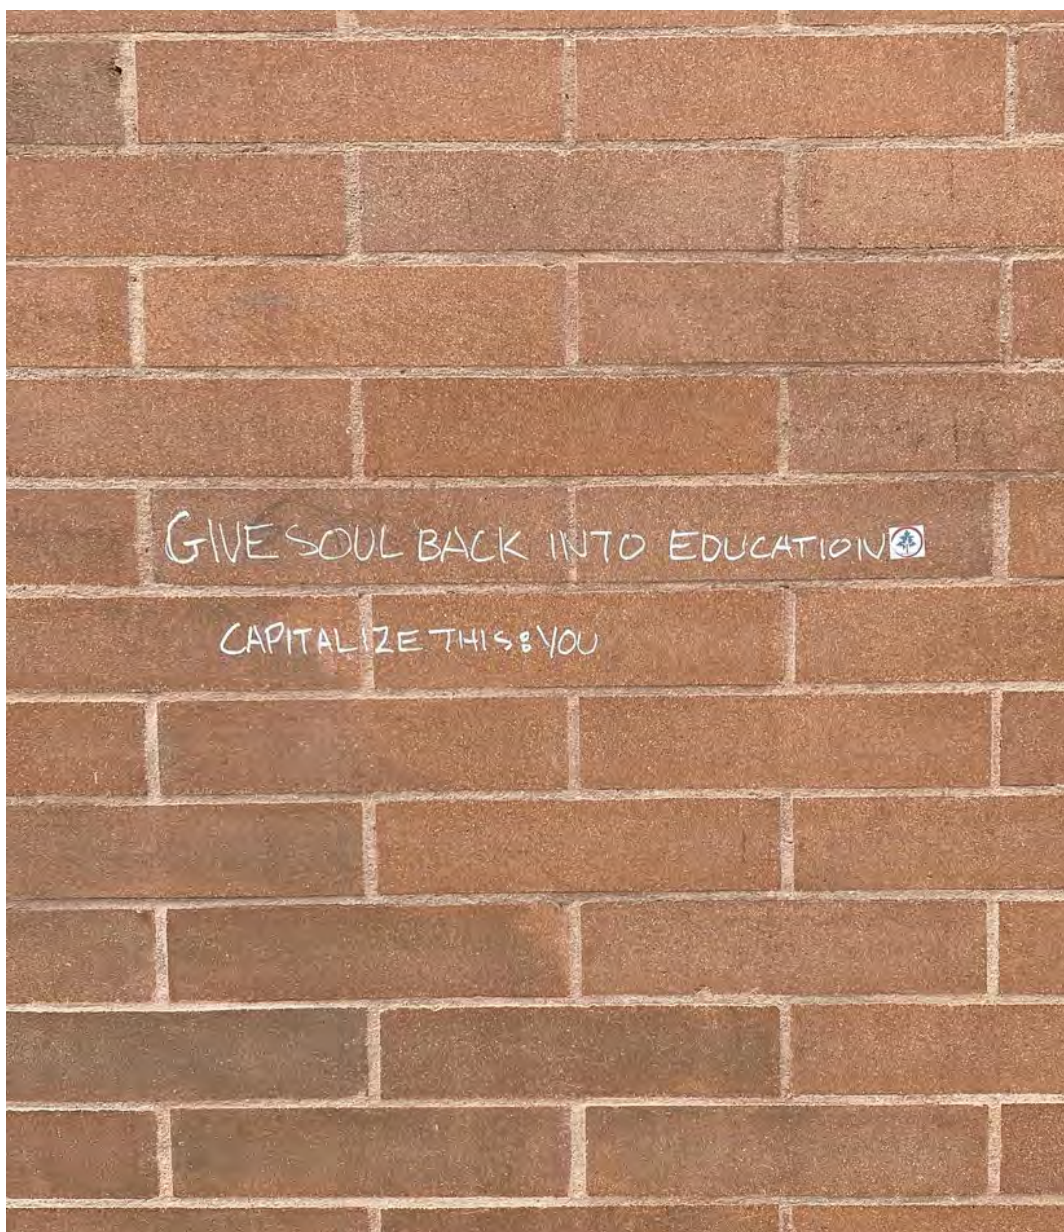 GIVE SOUL BACK INTO EDUCATION
CAPITALIZE THIS: YOU